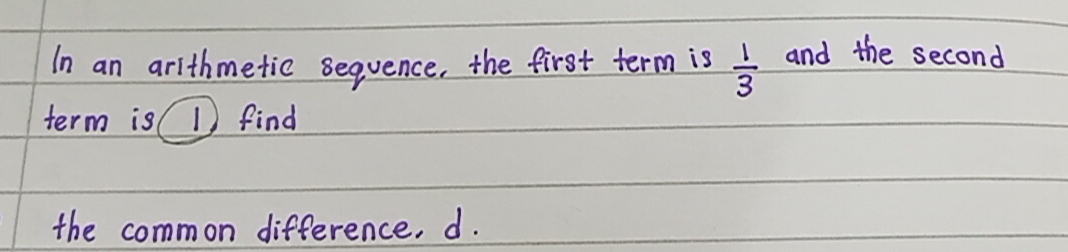 In an arithmetic sequence, the first term is 1/3 and the second
term is 1, find
the common difference, d.